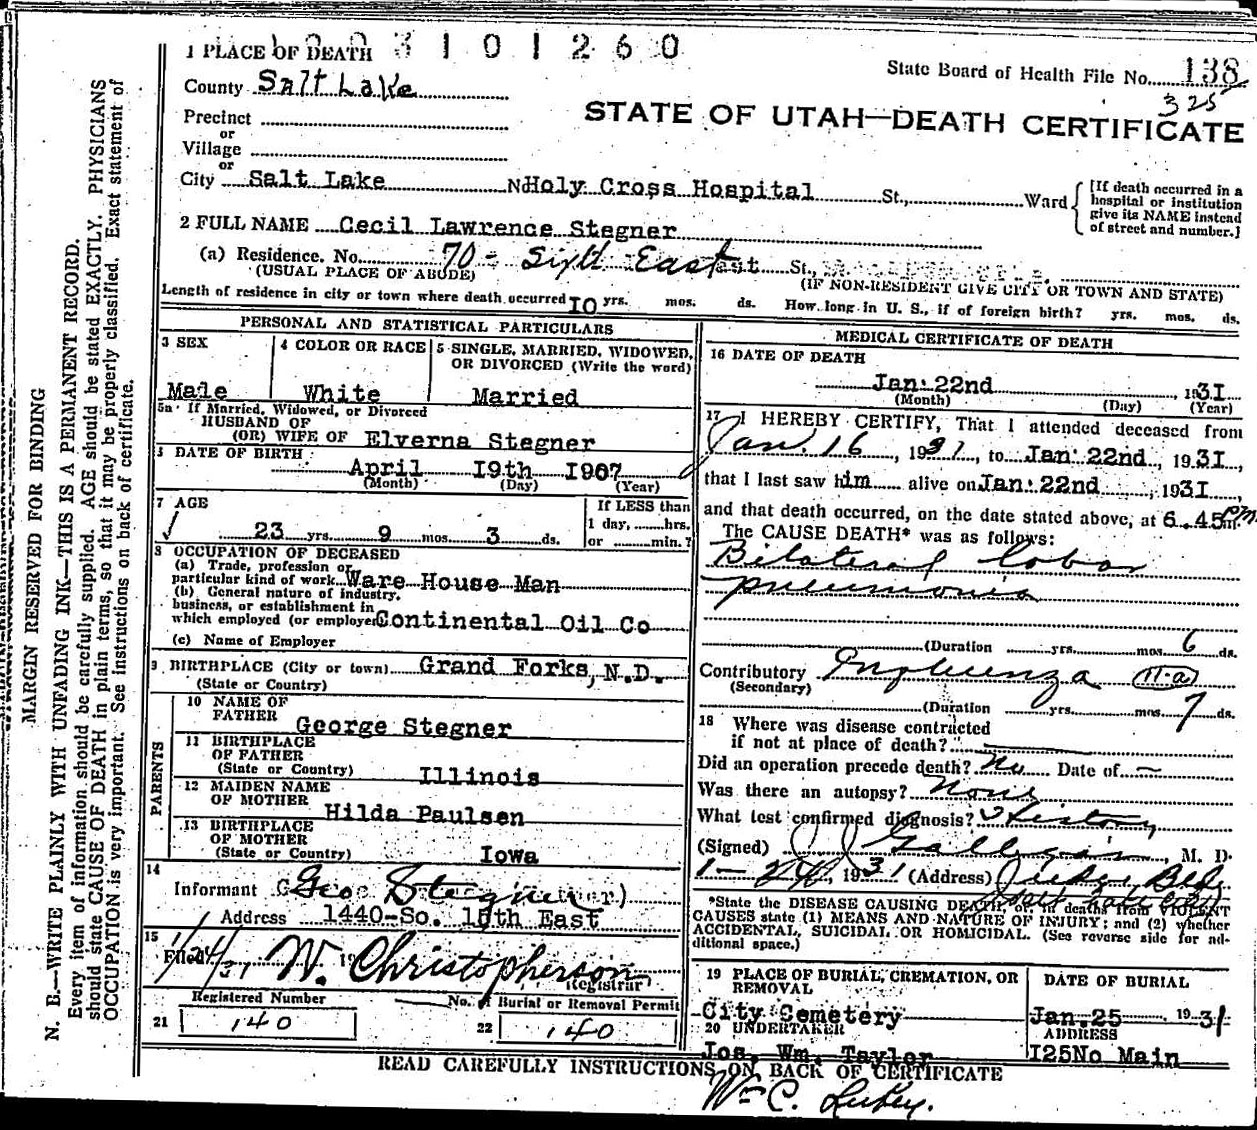 1 PLACE OF DEATH 3 1 0 1 2 6 0
State Board of Health File No. 138
325
County Salt Lake
STATE OF UTAH—DEATH CERTIFICATE
Precinct
or
Village
or
City Salt Lake No. Holy Cross Hospital St., Ward
[If death occurred in a hospital or institution give its NAME instead of street and number.]
2 FULL NAME Cecil Lawrence Stegner
(a) Residence. No. 70 - Sixth East St.,
(USUAL PLACE OF ABODE) (IF NON-RESIDENT GIVE CITY OR TOWN AND STATE)
Length of residence in city or town where death occurred 10 yrs. mos. ds. How long in U. S., if of foreign birth? yrs. mos. ds.
PERSONAL AND STATISTICAL PARTICULARS
3 SEX
Male
4 COLOR OR RACE
White
5 SINGLE, MARRIED, WIDOWED, OR DIVORCED (Write the word)
Married
5a If Married, Widowed, or Divorced
HUSBAND OF
(OR) WIFE OF Elverna Stegner
DATE OF BIRTH
April 19th 1907
(Month) (Day) (Year)
7 AGE
23 yrs. 9 mos. 3 ds.
If LESS than
1 day, hrs.
or min.?
8 OCCUPATION OF DECEASED
(a) Trade, profession or
particular kind of work Ware House Man
(b) General nature of industry,
business, or establishment in
which employed (or employer) Continental Oil Co
(c) Name of Employer
9 BIRTHPLACE (City or town) Grand Forks, N.D.
(State or Country)
PARENTS
10 NAME OF
FATHER George Stegner
11 BIRTHPLACE
OF FATHER
(State or Country) Illinois
12 MAIDEN NAME
OF MOTHER Hilda Paulsen
13 BIRTHPLACE
OF MOTHER
(State or Country) Iowa
14
Informant Geo Stegner
Address 1440-So. 15th East
15
Filed 1/24/31 W. Christopherson
Registrar
Registered Number
21 140
No. of Burial or Removal Permit
22 140
MEDICAL CERTIFICATE OF DEATH
16 DATE OF DEATH
Jan. 22nd, 1931
(Month) (Day) (Year)
17 I HEREBY CERTIFY, That I attended deceased from
Jan. 16, 1931, to Jan. 22nd, 1931,
that I last saw him alive on Jan. 22nd, 1931,
and that death occurred, on the date stated above, at 6.45 P.m.
The CAUSE DEATH* was as follows:
Bilateral lobar
pneumonia
(Duration yrs. mos. 6 ds.
Contributory Influenza 11-a
(Secondary)
(Duration yrs. mos. 7 ds.
18 Where was disease contracted
if not at place of death?
Did an operation precede death? No Date of —
Was there an autopsy? None
What test confirmed diagnosis? History
(Signed) M. D.
1-24, 1931 (Address) Judge Bldg.
Salt Lake City
*State the DISEASE CAUSING DEATH, or in deaths from VIOLENT
CAUSES state (1) MEANS AND NATURE OF INJURY; and (2) whether
ACCIDENTAL, SUICIDAL OR HOMICIDAL. (See reverse side for ad-
ditional space.)
19 PLACE OF BURIAL, CREMATION, OR
REMOVAL
City Cemetery
DATE OF BURIAL
Jan. 25 1931
20 UNDERTAKER
Jos. Wm. Taylor
ADDRESS
125 No Main
READ CAREFULLY INSTRUCTIONS ON BACK OF CERTIFICATE
Wm C.
MARGIN RESERVED FOR BINDING
N. B.—WRITE PLAINLY WITH UNFADING INK—THIS IS A PERMANENT RECORD.
Every item of information should be carefully supplied. AGE should be stated EXACTLY. PHYSICIANS
should state CAUSE OF DEATH in plain terms, so that it may be properly classified. Exact statement of
OCCUPATION is very important. See instructions on back of certificate.